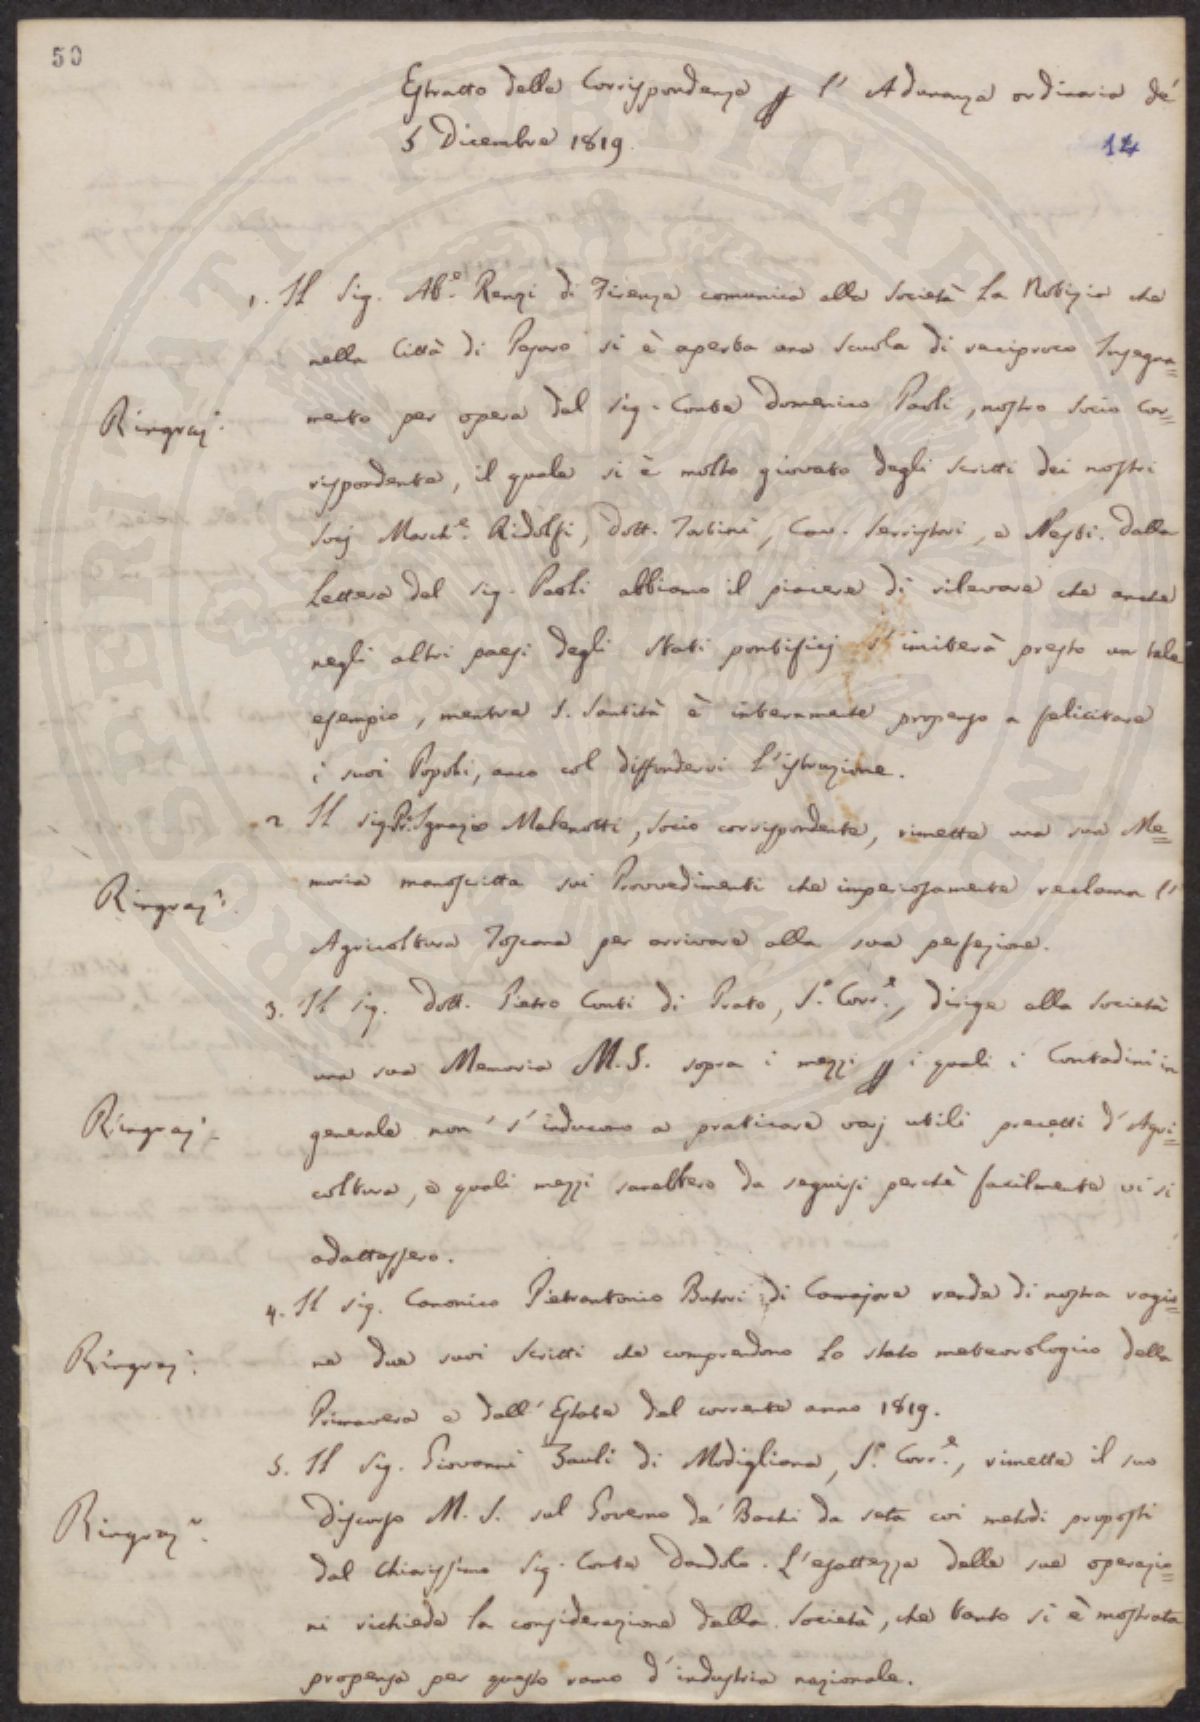 50
Estratto della Corrispondenza p l'Adunanza ordinaria de'
5 Dicembre 1819.
14
1. Il Sig. Ab.e Renzi di Firenze comunica alla Società la Notizia che
nella Città di Pesaro si è aperta una Scuola di reciproco Insegna=
Ringraz:
mento per opera del Sig. Conte Domenico Paoli, nostro Socio Cor=
rispondente, il quale si è molto giovato degli Scritti dei nostri
Socj March.e Ridolfi, Dott. Tartini, Cav. Serristori, e Nesti. Dalla
Lettera del Sig. Paoli abbiamo il piacere di rilevare che anche
negli altri paesi degli Stati pontificj s'imiterà presto un tale
esempio, mentre S. Santità è interamente propenso a felicitare
i suoi Popoli, anco col diffondervi l'istruzione.
2 Il Sig. Pr. Ignazio Malenotti, Socio corrispondente, rimette una sua Me=
Ringraz:
moria manoscritta sui Provvedimenti che imperiosamente reclama l'
Agricoltura Toscana per arrivare alla sua perfezione.
3. Il Sig. Dott. Pietro Conti di Prato, S.o Corr.e, dirige alla Società
una sua Memoria M.S. sopra i mezzi p i quali i Contadini in
Ringraz:
generale non s'inducono a praticare varj utili precetti d'Agri=
coltura, e quali mezzi sarebbero da seguirsi perchè facilmente vi si
adattassero.
4. Il Sig. Canonico Pietrantonio Butori di Camajore rende di nostra ragio
Ringraz:
ne due suoi Scritti che comprendono lo stato meteorologico della
Primavera e dall'Estate del corrente anno 1819.
5. Il Sig. Giovanni Zauli di Modigliana, S.o Corr.e, rimette il suo
Ringraz:
Discorso M.S. sul Governo de' Bachi da seta coi metodi proposti
dal Chiarissimo Sig. Conte Dandolo. L'esattezza delle sue operazio=
ni richiede la considerazione della Società, che tanto si è mostrata
propensa per questo ramo d'industria nazionale.
PROSPERITATI PUBLICAE AUGENDAE